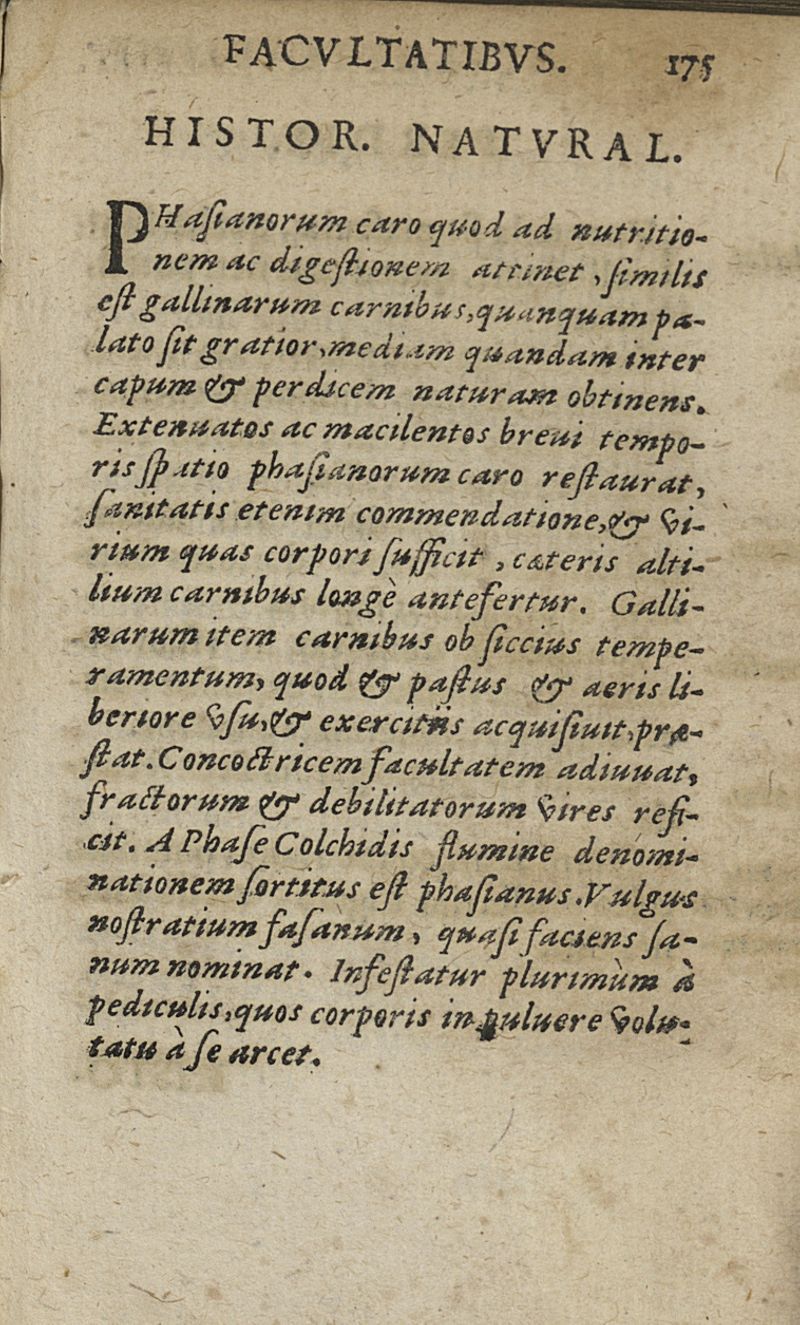 FACVLTATIBVS. 175
HISTOR. NATVRAL.
PHaſianorum caro quod ad nutritio-
nem ac digeſtionem attinet, ſimilis
eſt gallinarum carnibus, quanquam pa-
lato ſit gratior, mediam quandam inter
capum & perdicem naturam obtinens.
Extenuatos ac macilentos breui tempo-
ris ſpatio phaſianorum caro reſtaurat,
ſanitatis etenim commendatione, & vi-
rium quas corpori ſufficit, cæteris alti-
lium carnibus longè antefertur. Galli-
narum item carnibus ob ſiccius tempe-
ramentum, quod & paſtus & aeris li-
beriore vſu, & exercitiis acquiſiuit, præ-
ſtat. Concoctricem facultatem adiuuat,
fractorum & debilitatorum vires refi-
cit. A Phaſe Colchidis flumine denomi-
nationem ſortitus eſt phaſianus. Vulgus
noſtratium faſanum, quaſi faciens ſa-
num nominat. Infeſtatur plurimùm à
pediculis, quos corporis in puluere volu-
tatu à ſe arcet.